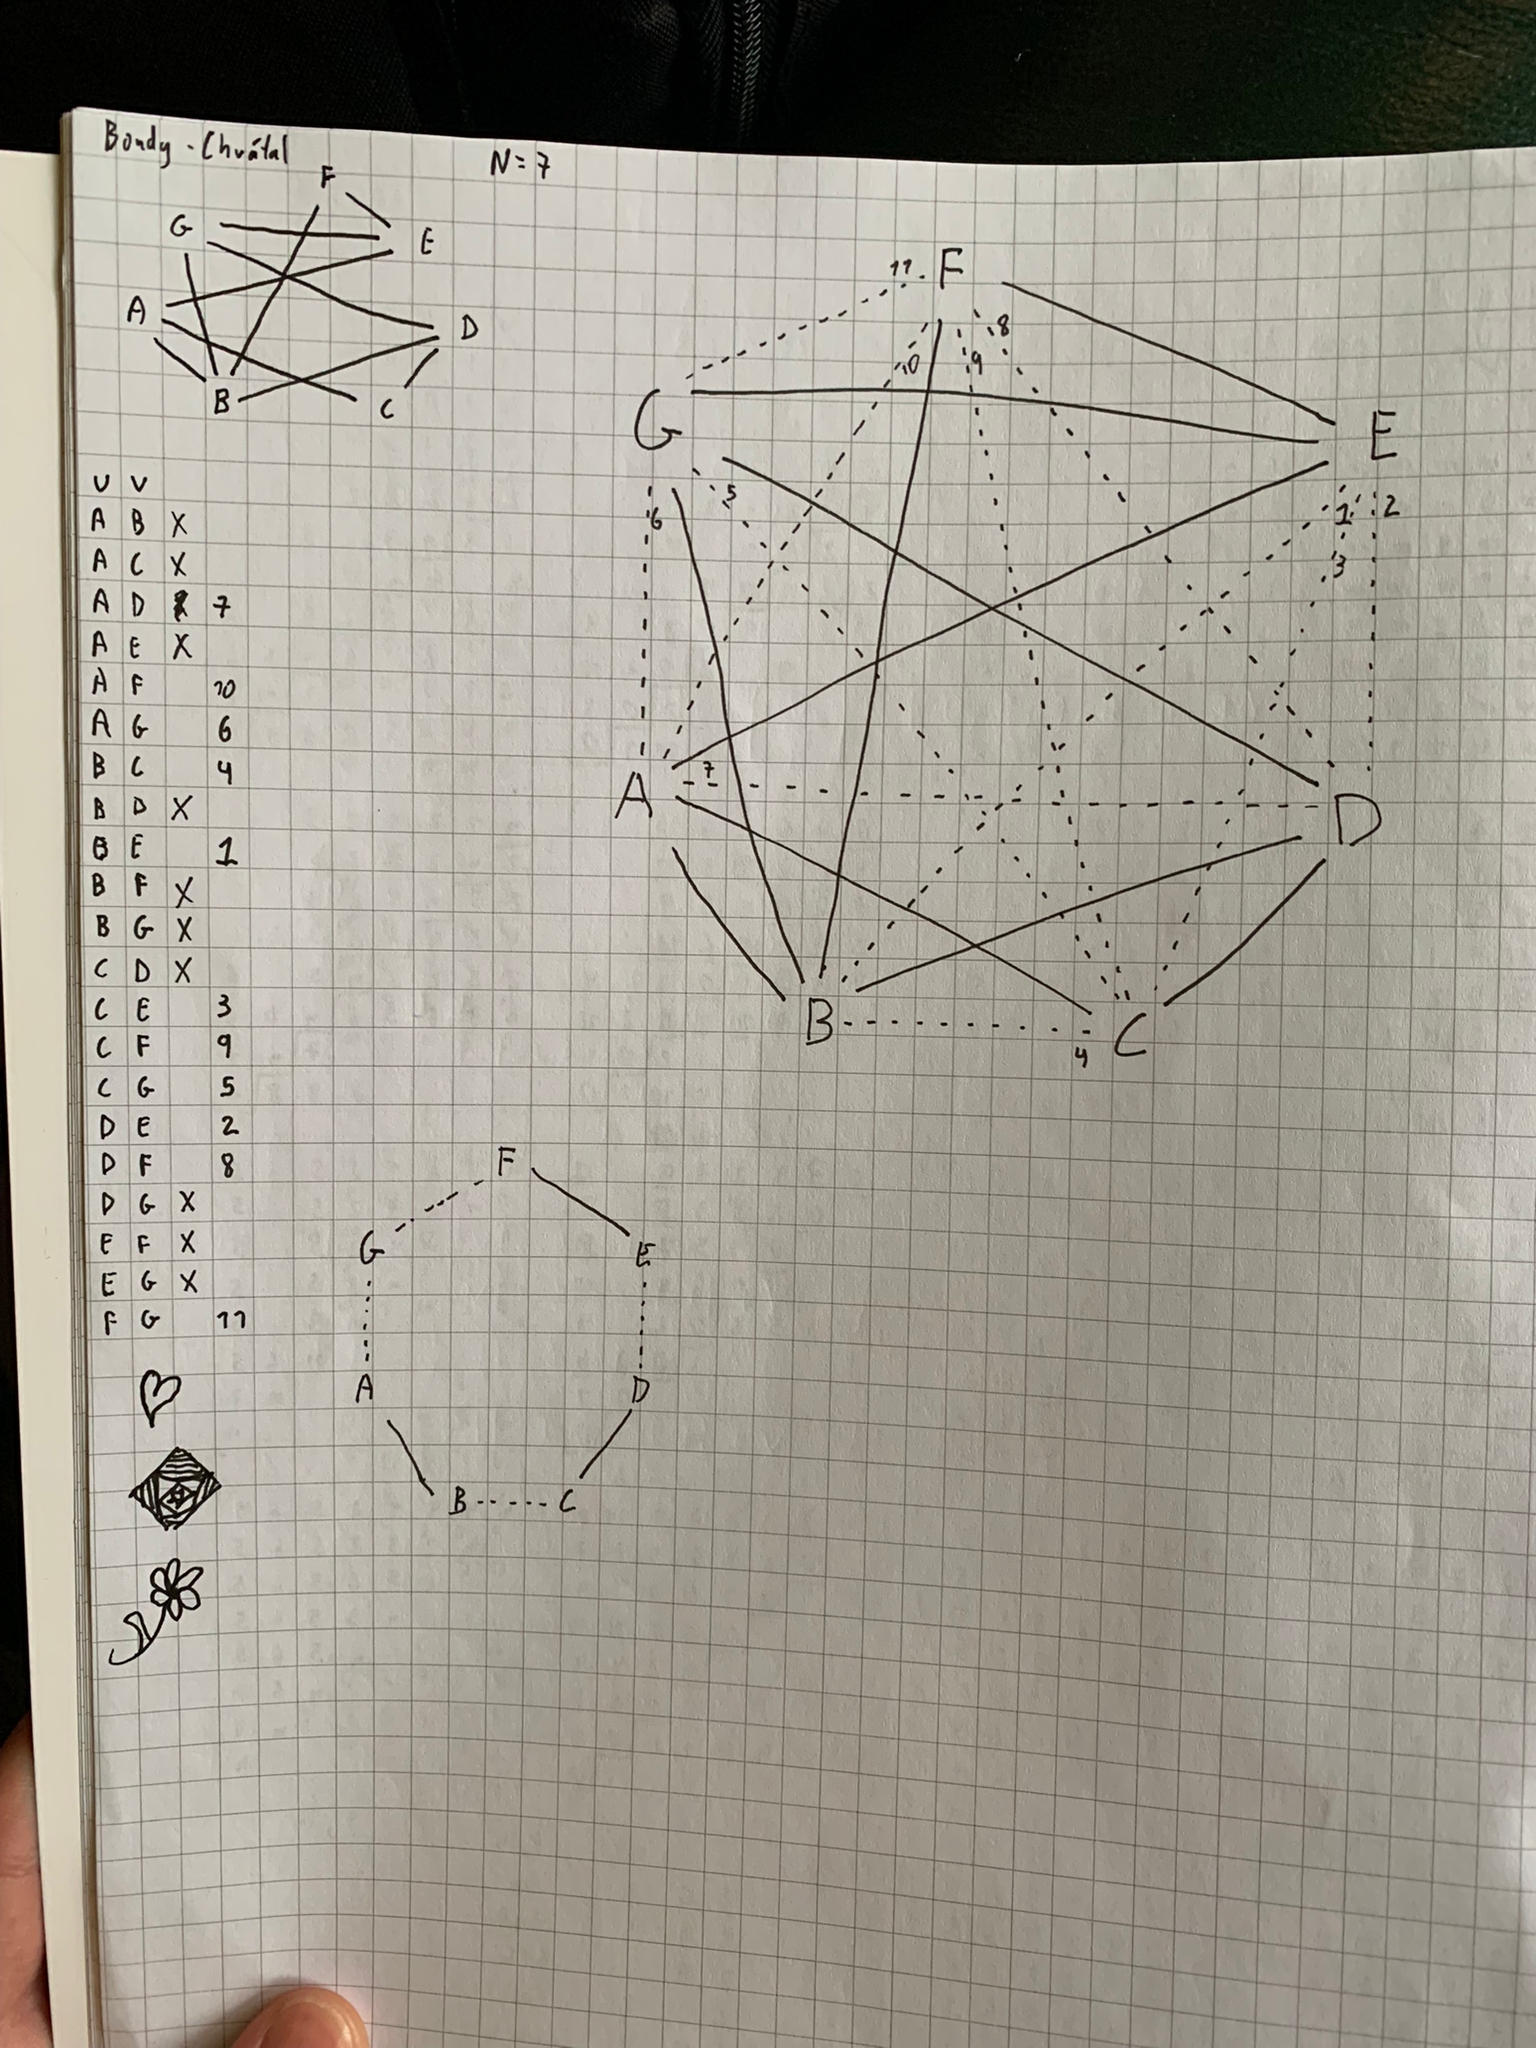 Bondy - Chvátal
N = 7
F
G
E
A
D
B
C
U V
A B X
A C X
A D 7
A E X
A F 10
A G 6
B C 4
B D X
B E 1
B F X
B G X
C D X
C E 3
C F 9
C G 5
D E 2
D F 8
D G X
E F X
E G X
F G 11
11 F
8
10 9
G
E
5
6
1 2
3
7
A
D
B
C
4
F
G
E
A
D
B
C